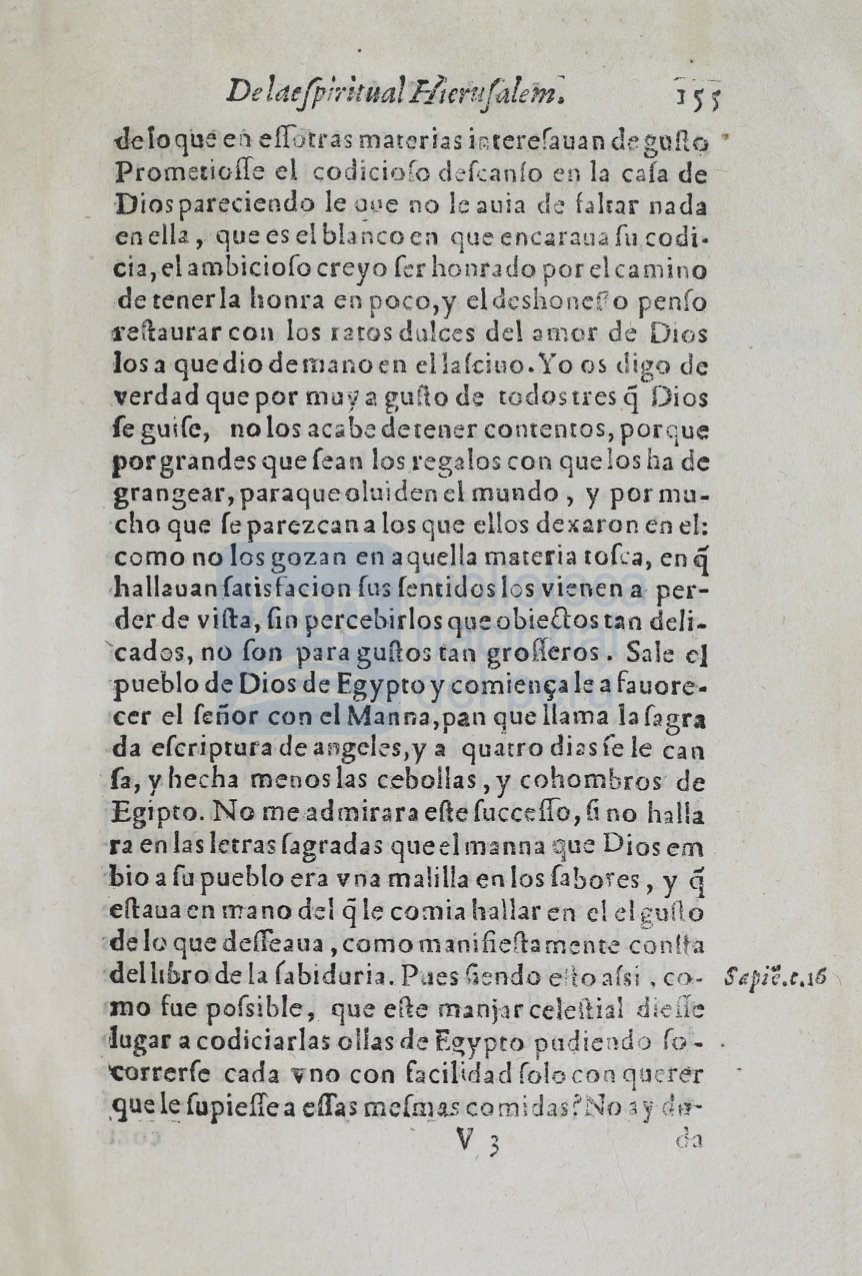 De la eſpiritual Hieruſalem. 155
de lo que en eſſotras materias intereſauan de guſto
Prometioſſe el codicioſo deſcanſo en la caſa de
Dios pareciendo le que no le auia de faltar nada
en ella, que es el blanco en que encaraua ſu codi-
cia, el ambicioſo creyo ſer honrado por el camino
de tener la honra en poco, y el deshoneſto penſo
reſtaurar con los ratos dulces del amor de Dios
los a que dio de mano en el laſciuo. Yo os digo de
verdad que por muy a guſto de todos tres q̃ Dios
ſe guiſe, no los acabe de tener contentos, porque
por grandes que ſean los regalos con que los ha de
grangear, para que oluiden el mundo, y por mu-
cho que ſe parezcan a los que ellos dexaron en el:
como no los gozan en aquella materia toſca, en q̃
hallauan ſatisfacion ſus ſentidos los vienen a per-
der de viſta, ſin percebirlos que obiectos tan deli-
cados, no ſon para guſtos tan groſſeros. Sale el
pueblo de Dios de Egypto y comiença le a fauore-
cer el ſeñor con el Manna, pan que llama la ſagra
da eſcriptura de angeles, y a quatro dias ſe le can
ſa, y hecha menos las cebollas, y cohombros de
Egipto. No me admirara eſte ſucceſſo, ſi no halla
ra en las letras ſagradas que el manna que Dios em
bio a ſu pueblo era vna malilla en los ſabores, y q̃
eſtaua en mano del q̃ le comia hallar en el el guſto
de lo que deſſeaua, como manifieſtamente conſta
del libro de la ſabiduria. Pues ſiendo eſto aſsi, co- Sapiẽ.c.16
mo fue poſsible, que eſte manjar celeſtial dieſſe
lugar a codiciar las ollas de Egypto pudiendo ſo-
correrſe cada vno con facilidad ſolo con querer
que le ſupieſſe a eſſas meſmas comidas? No ay du-
V 3 da